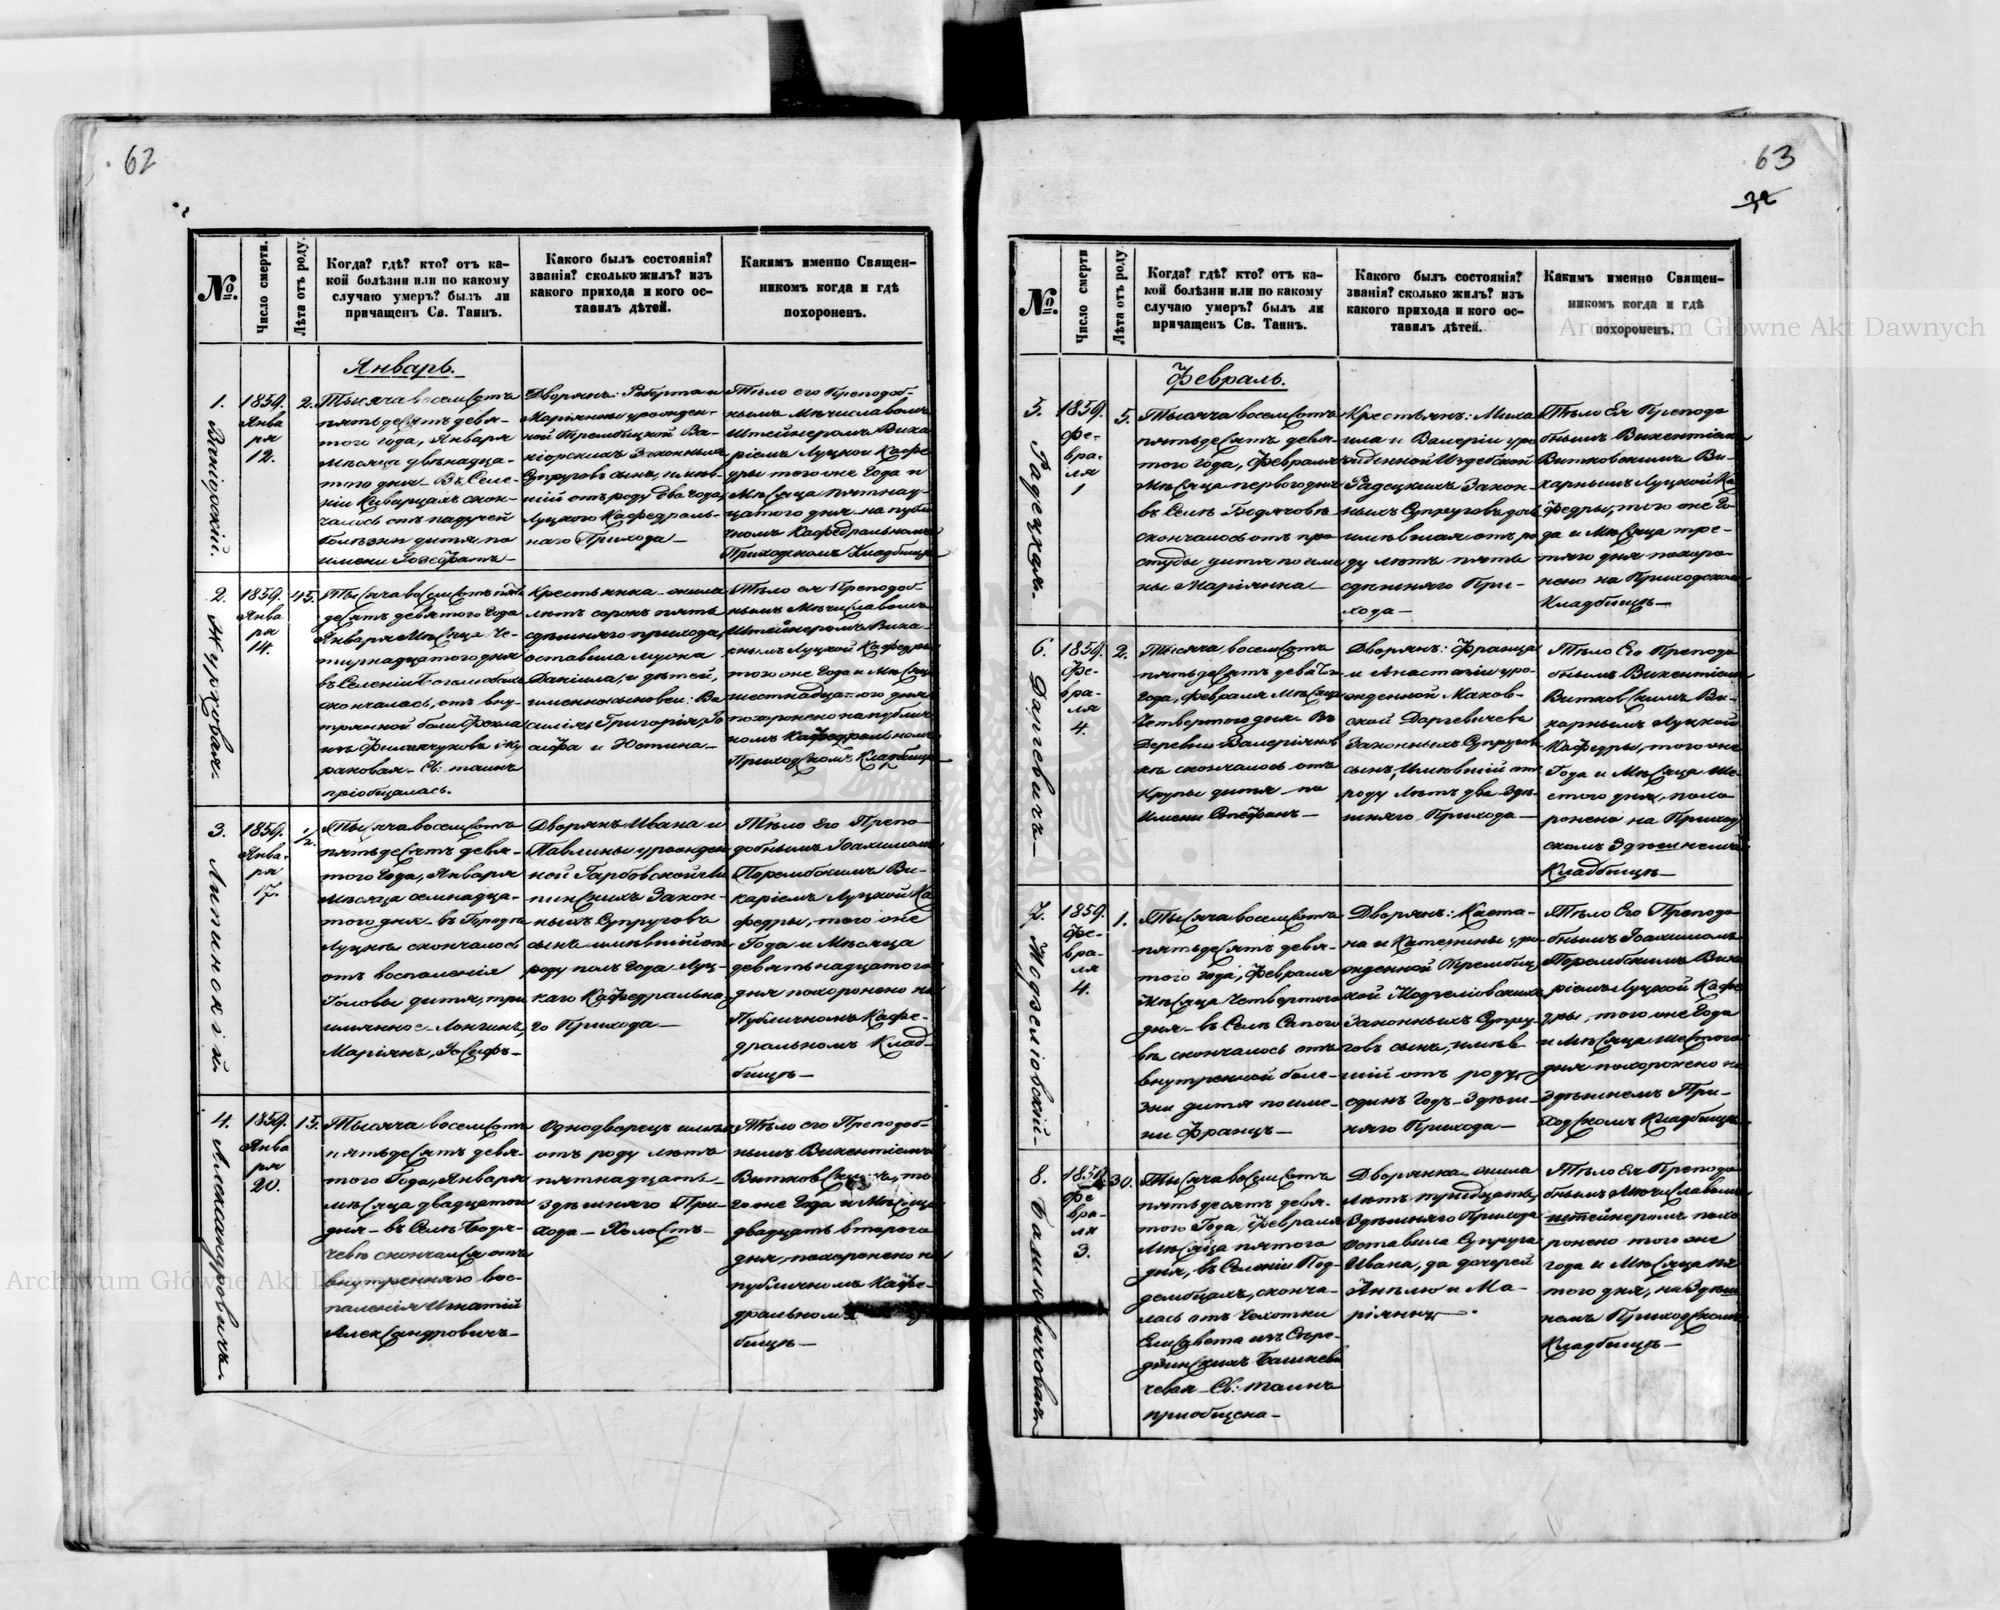 62
№
Число смерти.
Лѣта отъ роду.
Когда? гдѣ? кто? отъ ка-
кой болѣзни или по какому
случаю умеръ? былъ ли
причащенъ Св. Таинъ.
Какого былъ состоянія?
званія? сколько жилъ? изъ
какого прихода и кого ос-
тавилъ дѣтей.
Какимъ именно Священ-
никомъ когда и гдѣ
похороненъ.
Январь.
1.
1859.
Янва
ря
12.
2.
Тысяча восемсотъ
пятьдесятъ девя-
того года, Января
мѣсяца двѣнадца-
того дня въ Селе-
ніи Киверцахъ скон-
чалось отъ падучей
болѣзни дитя, по
имени Іосафатъ
Дворянъ: Роберта и
Маріянны урожден-
ной Трембицкой
Законныхъ
Супруговъ сынъ, имѣв-
шій отъ роду два года
Луцкого Кафедраль-
наго Прихода
Тѣло его Преподоб-
нымъ Мѣчиславомъ
Штейнеромъ Вика
ріемъ Луцкой Кафе
дры того же Года и
Мѣсяца пятнад-
цатого дня на публи
чномъ Кафедральномъ
Приходскомъ Кладбищѣ
2. Журковая
1859.
Янва
ря
14.
45.
Тысяча восемсотъ пять
десятъ девятого Года
Января Мѣсяца че-
тырнадцатого дня
въ Селеніи
скончалась, отъ вну-
тренной боли Фекла
раковая Св: таинъ
пріобщалась.
Крестьянка жила
лѣтъ сорокъ пять
сдѣшняго прихода,
оставила мужа
Даніила, и дѣтей,
именно сыновей: Ва
силія, Григорія, Іо
сифа и Юстина
Тѣло ея Преподоб-
нымъ Мѣчиславомъ
Штейнеромъ Вика-
рнымъ Луцкой Кафедры
того же Года и Мѣсяца
шестнадцатого дня
похоронено на публич
номъ Кафедральномъ
Приходскомъ Кладбищѣ
3. Липинскій.
1859.
Янва-
ря
17.
1/2.
Тысяча восемсотъ
пятьдесятъ девя-
того Года, Января
Мѣсяца семнадца-
того дня въ Городѣ
Луцкѣ скончалось
отъ воспаленія
Головы дитя, три
имянное Лонгинъ,
Маріянъ, Іосифъ
Дворянъ Ивана и
Павлины урожден
ной Гарбовской Ли
пинскихъ Закон-
ныхъ Супруговъ
сынъ имѣвшій отъ
роду полъ Года Луц-
каго Кафедрально
го Прихода
Тѣло Его Препо-
добнымъ Іоахимомъ
Порембскимъ Ви-
каріемъ Луцкой Ка
федры, того же
Года и Мѣсяца
девятьнадцатого
дня похоронено на
Публичномъ Кафе-
дральномъ Клад-
бищѣ
4. Александровичъ
1859.
Янва
ря
20.
15.
Тысяча восемсотъ
пятьдесятъ девя-
того Года, Января
мѣсяца двадцатого
дня въ Селѣ Бодя-
чевѣ скончался отъ
внутренняго вос-
паленія Игнатій
Александровичъ
Однодворецъ имѣлъ
отъ роду лѣтъ
пятнадцать
здѣшняго При-
хода Холостъ
Тѣло его Преподоб-
нымъ Викентіемъ
Витковскимъ, то
го же Года и Мѣсяца
двадцать второго
дня, похоронено на
публичномъ Кафе-
дральномъ
бищѣ
63
32
№
Число смерти
Лѣта отъ роду
Когда? гдѣ? кто? отъ ка-
кой болѣзни или по какому
случаю умеръ? былъ ли
причащенъ Св. Таинъ.
Какого былъ состоянія?
званія? сколько жилъ? изъ
какого прихода и кого ос-
тавилъ дѣтей.
Какимъ именно Священ-
никомъ когда и гдѣ
похороненъ.
Февраль.
5. Радецкая.
1859.
Фе-
вра-
ля
1
5.
Тысяча восемсотъ
пятьдесятъ девя-
того года, Февраля
Мѣсяца первого дня
въ Селѣ Бодячовѣ
скончалось отъ про
студы дитя по име
ны Маріянна
Крестьянъ: Миха
ила и Валеріи уро
жденной Издебской
Радецкихъ Закон-
ныхъ Супруговъ дочь
имѣвшая отъ ро
ду лѣтъ пять
сдѣшняго При-
хода
Тѣло Ея Преподо
бнымъ Викентіемъ
Витковскимъ Ви-
карнымъ Луцкой Ка
федры, того же Го-
да и Мѣсяца тре-
тяго дня похоро-
нено на Приходскомъ
Кладбищѣ
6. Даргевичъ
1859.
Фе-
вра-
ля
4.
2.
Тысяча восемсотъ
пятьдесятъ девятого
Года, Февраля Мѣсяца
Четвертого дня въ
Деревни Валеріянов
кѣ скончалось отъ
Крупы дитя по
Имени Стефанъ
Дворянъ: Франца
и Анастасіи уро-
жденной Махов-
ской Даргевичевъ
Законныхъ Супруговъ
сынъ, Имѣвшій отъ
роду лѣтъ два здѣ-
шняго Прихода
Тѣло Его Преподо
бнымъ Викентіемъ
Витковскимъ Ви-
карнымъ Луцкой
Кафедры, того же
Года и Мѣсяца ше-
стого дня, похо
ронено на Приход
скомъ Здѣшнемъ
Кладбищѣ
7.
1859.
Фе-
вра-
ля
4.
1.
Тысяча восемсотъ
пятьдесятъ девя-
того года, Февраля
Мѣсяца Четвертого
дня въ Селѣ Сапого
вѣ скончалось отъ
внутренной болѣ-
зни дитя по име-
ни Францъ
Дворянъ: Каета-
на и Катерины уро-
жденной Трембиц
кой
Законныхъ Супру-
говъ сынъ, имѣв
шій отъ роду
одинъ Годъ Здѣш-
няго Прихода
Тѣло Его Преподо
бнымъ Іоахимомъ
Порембскимъ Вика
ріемъ Луцкой Кафе
дры, того же Года
и Мѣсяца шестого
дня похоронено на
здѣшнемъ При-
ходскомъ Кладбищѣ
8.
1859.
Фе
вра-
ля
3.
30.
Тысяча восемсотъ
пятьдесятъ девя-
того Года, Февраля
Мѣсяца пятого
дня, въ Селеніи Под-
дембцахъ, сконча-
лась отъ Чахотки
Елисавета изъ
чевая Св: таинъ
приобщена
Дворянка жила
лѣтъ тридцать,
Здѣшняго Прихода
оставила Супруга
Ивана, да дочерей
Анѣлю и Ма-
ріянну
Тѣло Ея Преподо
бнымъ Мѣчиславомъ
Штейнеромъ похо
ронено того же
года и Мѣсяца пя
того дня, на Здѣш
немъ Приходскомъ
Кладбищѣ
Archiwum Główne Akt Dawnych
Archiwum Główne Akt Dawnych